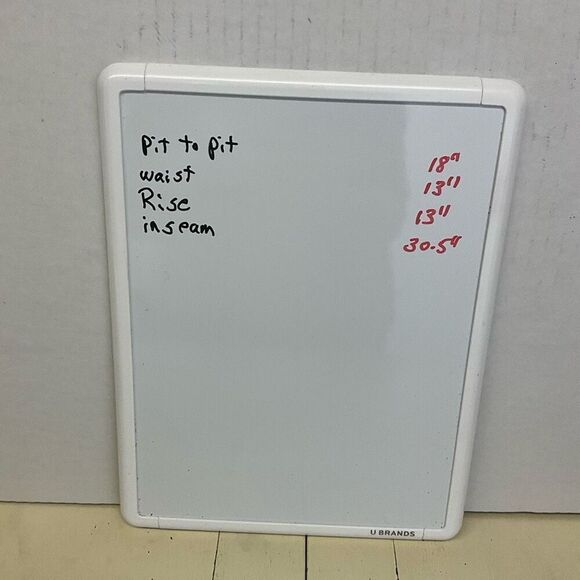 Pit to pit 18"
waist 13"
Rise 13"
inseam 30.5"
U BRANDS